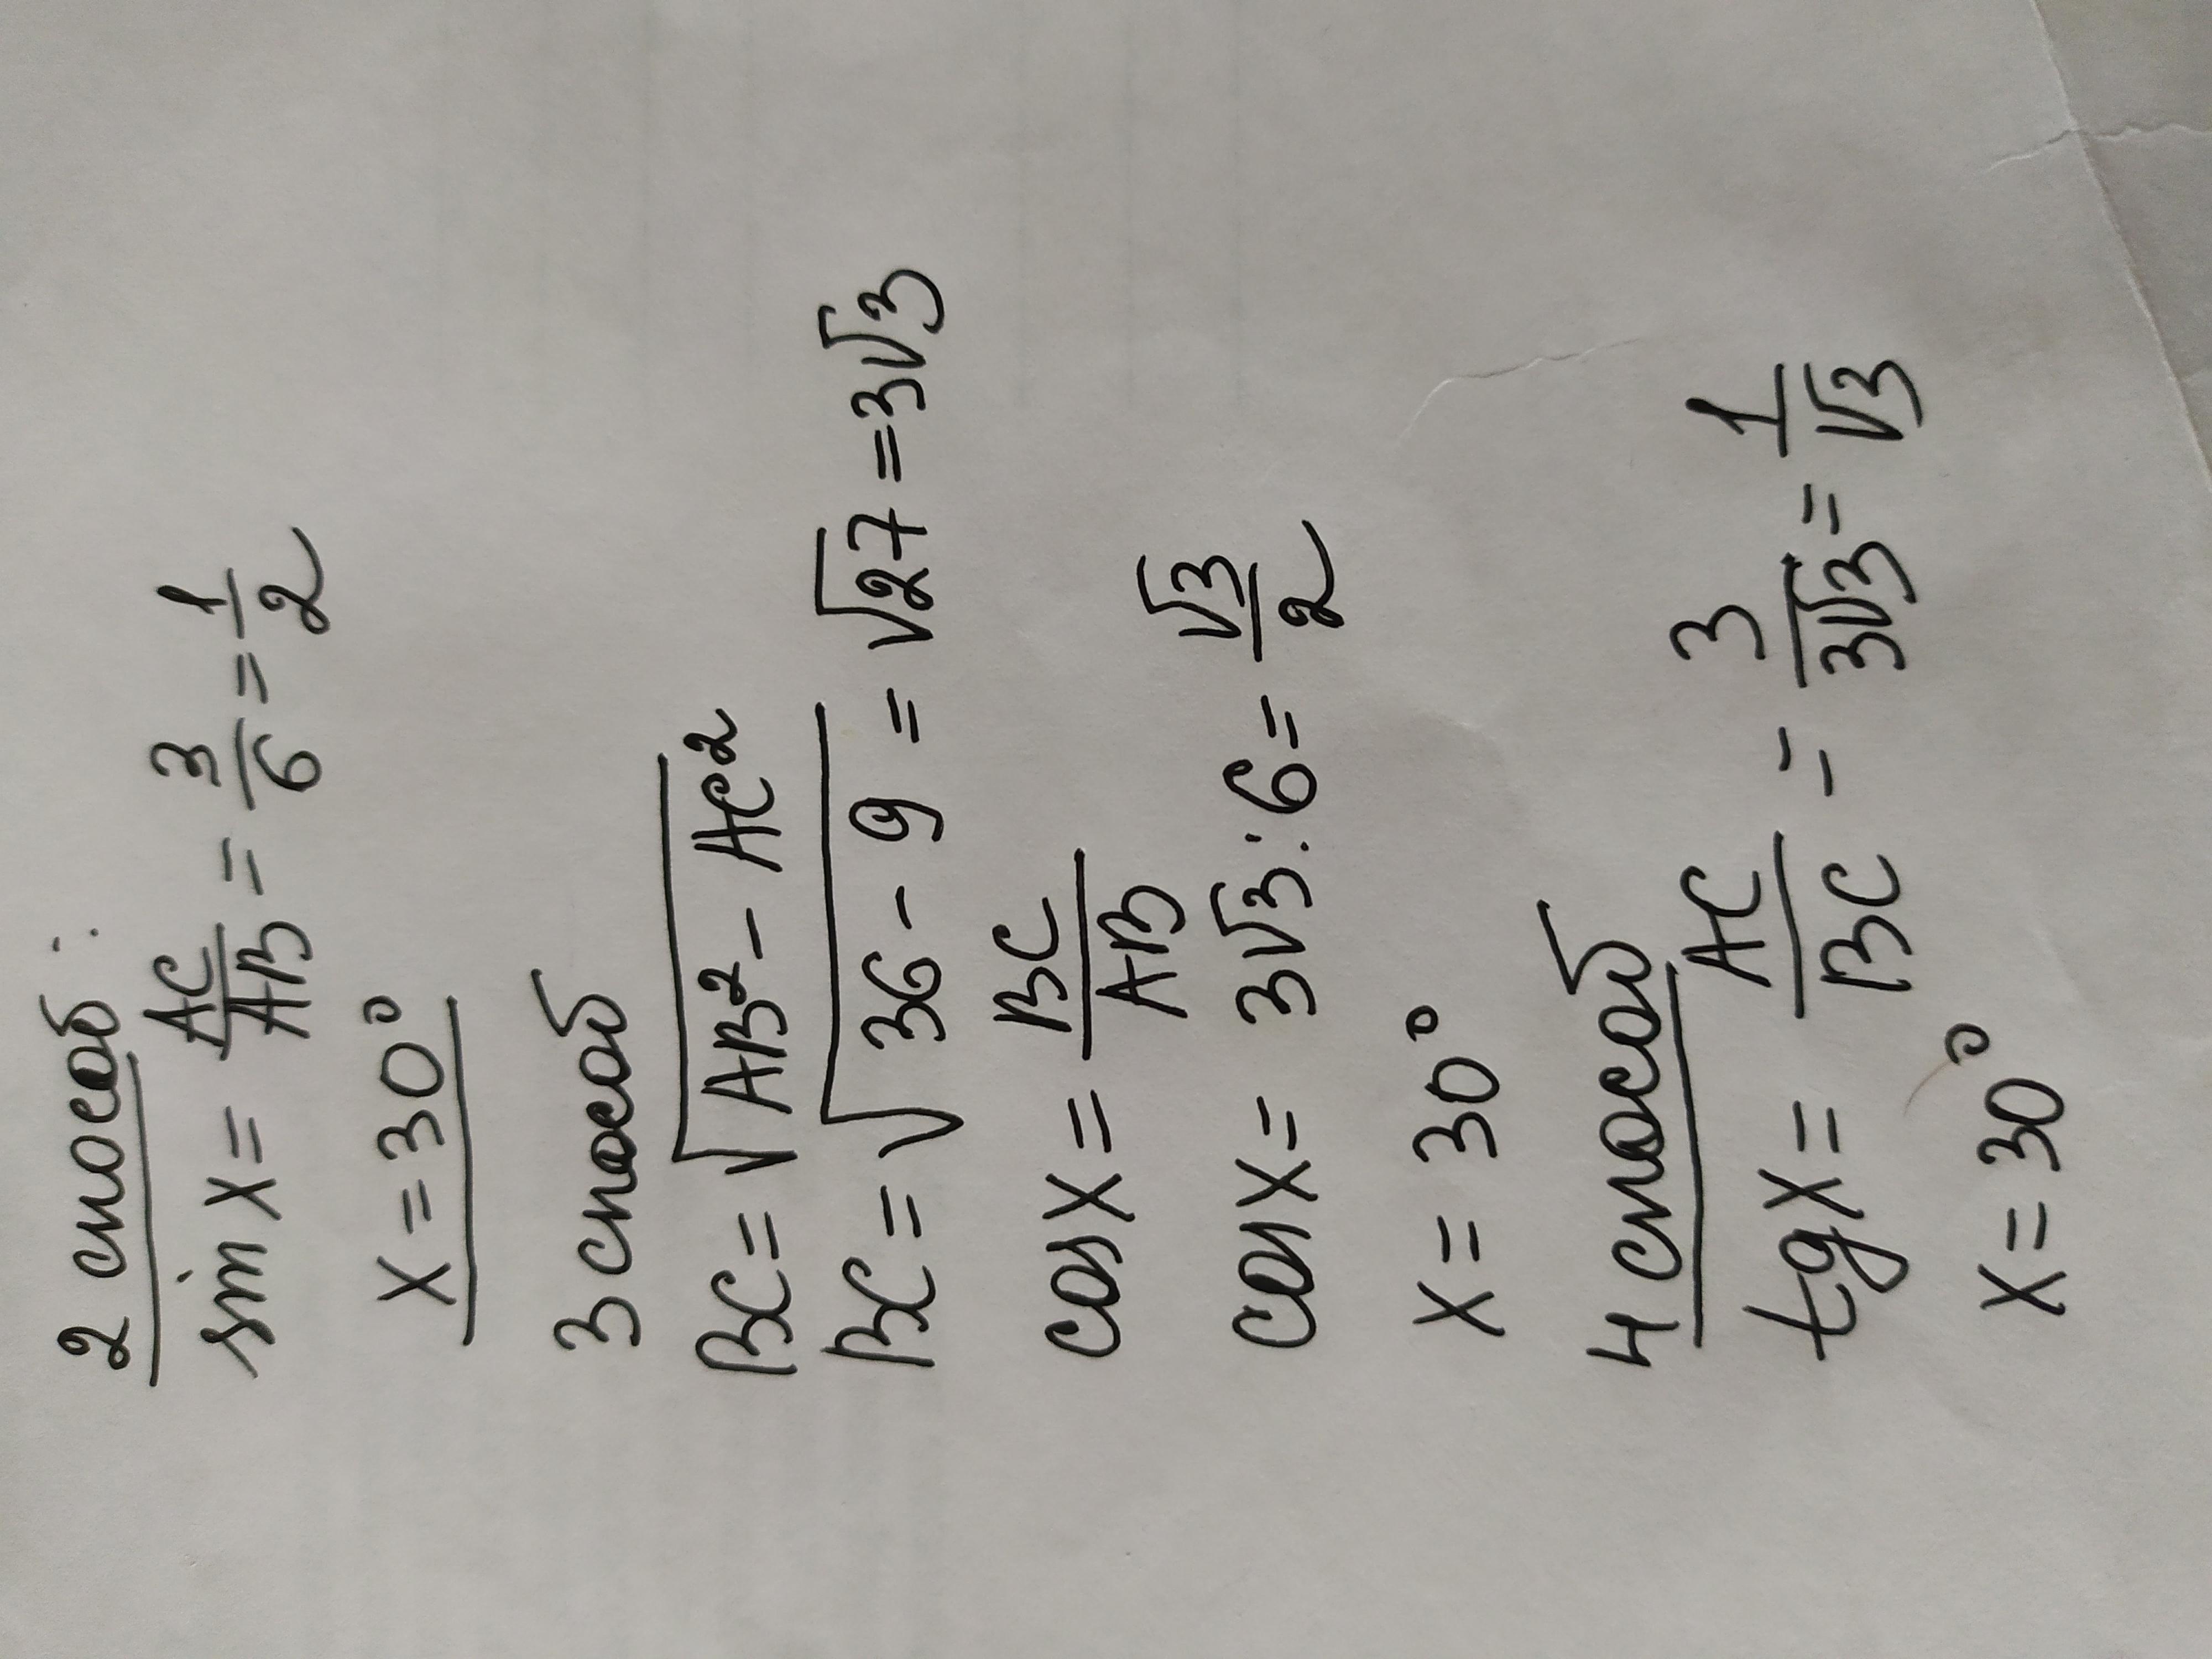 2 способ:
sin x = AC/AB = 3/6 = 1/2
x = 30°
3 способ
BC = √(AB² - AC²)
BC = √(36 - 9) = √27 = 3√3
cos x = BC/AB
cos x = 3√3 : 6 = √3/2
x = 30°
4 способ
tg x = AC/BC = 3/3√3 = 1/√3
x = 30°